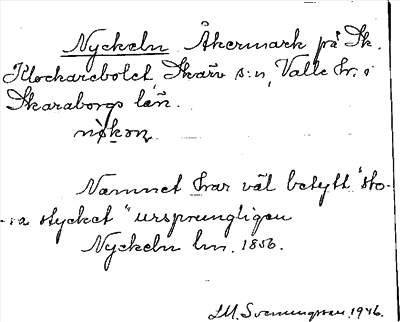 Nyckeln Åkermark på Sk.
Klockarebolet, Skärv s:n, Valle hr. i
Skaraborgs län.
Namnet har väl betytt "sto-
ra stycket" ursprungligen
Nyckeln lm. 1856.
I.M. Svenungsson. 1946.